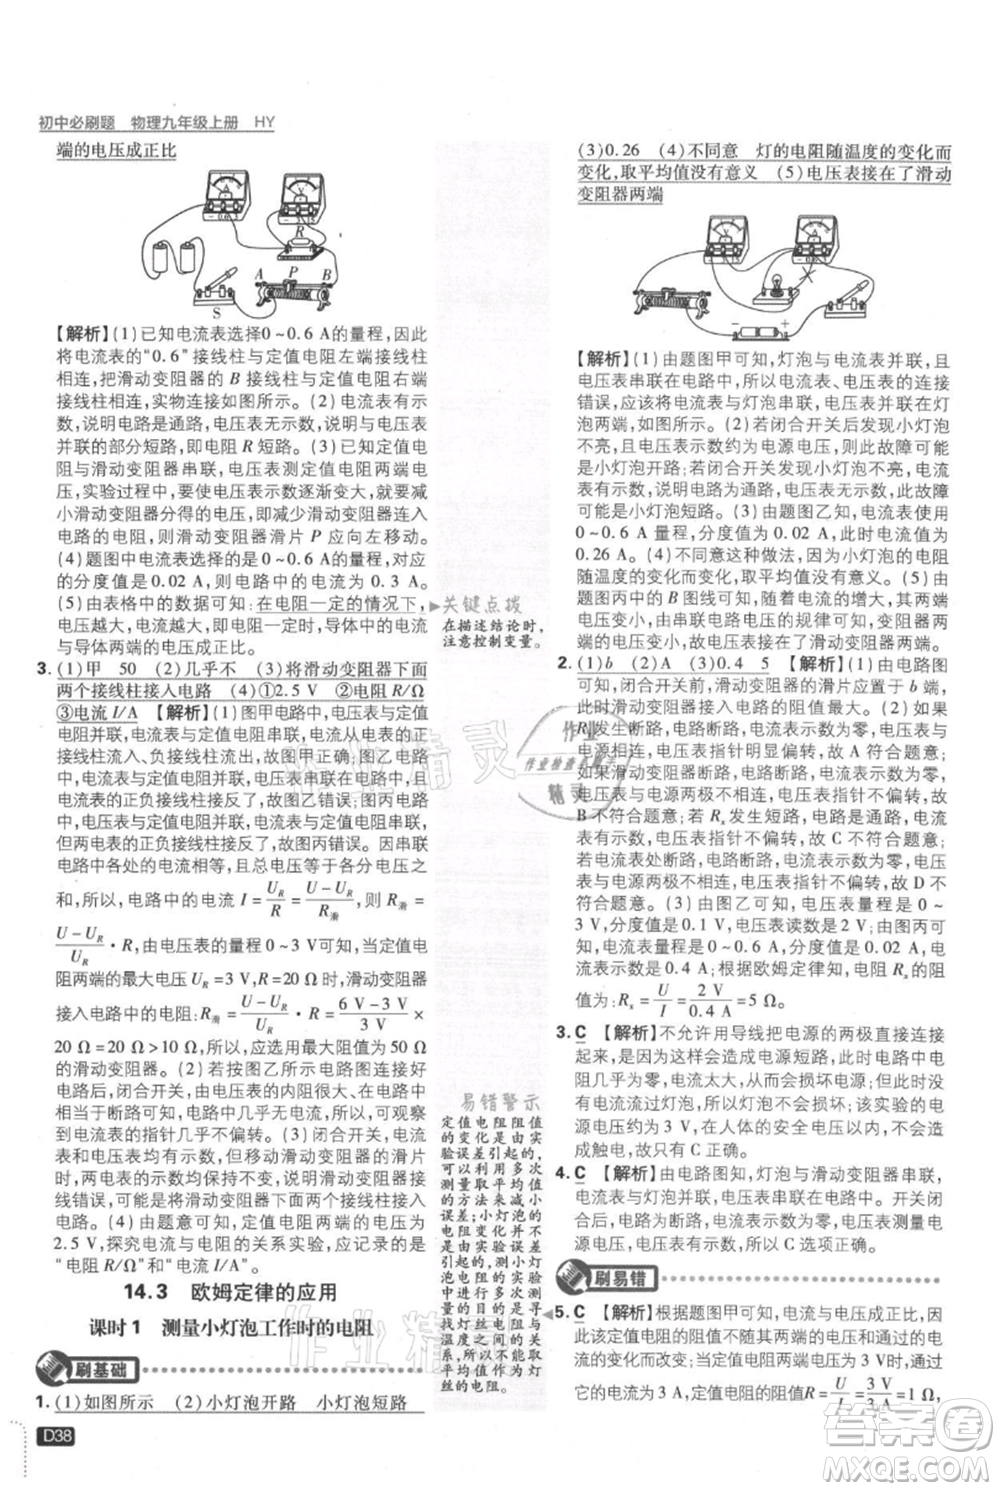 初中必刷题 物理九年级上册 HY
端的电压成正比
R
A P B
S
【解析】(1)已知电流表选择0~0.6 A的量程，因此
将电流表的“0.6”接线柱与定值电阻左端接线柱
相连，把滑动变阻器的 B 接线柱与定值电阻右端
接线柱相连，实物连接如图所示。(2)电流表有示
数，说明电路是通路，电压表无示数，说明与电压表
并联的部分短路，即电阻 R 短路。(3)已知定值电
阻与滑动变阻器串联，电压表测定值电阻两端电
压，实验过程中，要使电压表示数逐渐变大，就要减
小滑动变阻器分得的电压，即减小滑动变阻器连入
电路的电阻，则滑动变阻器滑片 P 应向左移动。
(4)题图中电流表的量程是 0~0.6 A，对应的分
度值是 0.02 A，则电路中的电流是 0.3 A。
(5)由表格中的数据可知：在电阻一定的情况下，
电压越大，电流越大，即电阻一定时，导体中的电流
与导体两端的电压成正比。
3. (1)甲 50 (2)几乎不 (3)将滑动变阻器下面
两个接线柱接入电路 (4)①2.5 V ②电阻 R/Ω
③电流 I/A 【解析】(1)图甲电路中，电压表与定值
电阻并联，电流表与定值电阻串联，且电流从正接
线柱流入、负接线柱流出，故图甲正确；图乙电路
中，电流表的正负接线柱接反了，故图乙错误；图丙
电路中，电压表的正负接线柱接反了，故图丙错误；
图丁电路中，电压表、电流表的正负接线柱都接反
了，且量程都选择大量程，故图丁错误。因串联
电路中各处的电流相等，且总电压等于各分电压之
和，所以，电路中的电流 I=U_R/R=(U−U_R)/R滑，则 R滑=
(U−U_R)/U_R·R，由电压表的量程 0~3 V可知，当定值电
阻两端的最大电压 U_R=3 V，R=20 Ω 时，滑动变阻器
接入电路中的电阻 R滑=(U−U_R)/U_R·R=(6 V−3 V)/3 V×
20 Ω=20 Ω>10 Ω，所以，应选用最大阻值为 50 Ω
的滑动变阻器。(2)因电压表的内阻很大、在电路
中相当于断路，且图乙所示的电路中电压表串联在
电路中，闭合开关后，电路中几乎无电流，所以可观察
到电流表的指针几乎不偏转。(3)闭合开关，电流
表和电压表均有示数，但无论怎样移动滑片，两
电表的示数均保持不变，可能是因为滑动变阻器接
线错误，是将滑动变阻器下面两个接线柱接入了
电路。(4)由题意可知，定值电阻两端的电压为
2.5 V，探究电流与电阻的关系实验，应记录的是
“电阻 R/Ω”和“电流 I/A”。
14.3 欧姆定律的应用
课时1 测量小灯泡工作时的电阻
刷基础
1. (1)如图所示 (2)小灯泡开路 小灯泡短路
D38
关键点拨
在描述结论时，
注意控制变量。
易错警示
定值电阻阻值
的变化是由实
验误差引起的，
可采用多次测
量求平均值
的方法来减小
误差；小灯泡的
电阻变化是由
温度变化引起
的，在利用实验
数据计算灯丝
电阻时，应计算
对应状态下的
灯丝电阻，不能
求灯丝电阻的
平均值来作为灯
丝的电阻。
(3)0.26 (4)不同意 灯的电阻随温度的变化而
变化，取平均值没有意义 (5)电压表接在了滑动
变阻器两端
【解析】(1)由题图甲可知，灯泡与电流表并联，且
电压表串联在电路中，所以电流表、电压表的连接
错误，应该将电流表与灯泡串联，电压表并联在灯
泡两端，如图所示。(2)若闭合开关后发现小灯泡
不亮，且电压表示数约为电源电压，则此故障可能
是小灯泡开路；若闭合开关发现小灯泡不亮，电流
表有示数，说明电路为通路，电压表无示数，则此故
障可能是小灯泡短路。(3)由图乙知，电流表使用
0~0.6 A 量程，分度值为 0.02 A，此时电流为
0.26 A。(4)不同意这种做法，因为小灯泡的电阻
随温度的变化而变化，取平均值没有意义。(5)由
题图丙中的 B 图线可知，电流变大时，电压表的示
数变小，由串联电路电压的规律可知，变阻器两端
的电压变小，故电压表并联在滑动变阻器两端。
2. (1)b (2)A (3)0.4 5 【解析】(1)由图甲电路
可知，闭合开关前，滑动变阻器的滑片应置于 b 端，
此时滑动变阻器接入电路的阻值最大。(2)如果
Rx发生断路，电路断路，电流表示数为零，指针不偏
转，电压表指针偏转明显，所以 A 符合题意；
如果滑动变阻器断路，电路断路，电流表指针不偏
转，电压表与电源两极不相连，电压表不偏转，故
B 不符合题意；若 Rx 发生短路，电流表指针偏转，
电压表被短路，电压表指针不偏转，故 C 不符合题意；
若电流表处断路，电流表指针不偏转，电压表与电
源两极不相连，电压表指针也不偏转，故 D 不
符合题意。(3)由图乙可知，电压表的量程是 0~
3 V，分度值是 0.1 V，电压表读数是 2 V。由图丙可
知，电流表量程为 0~0.6 A，分度值为 0.02 A，电流
表示数为 0.4 A。根据欧姆定律知，电阻 Rx的阻
值为：Rx=U/I=2 V/0.4 A=5 Ω。
3. C 【解析】不允许用导线把电源的两极直接连接
起来，是因为这样会造成电源短路，此时电路中电
阻几乎为零，电流太大，从而会损坏电源，甚至造成
火灾，但不会损坏导线和电流表；这个实验的电源
电压很低，在人体的安全电压以内，所以不会造
成触电，故 C 正确。
4. C 【解析】由电路图知，灯泡与滑动变阻器串联，
电流表与灯泡串联，电流表串联在电路中。开关闭
合后，电路断路，电流表没有示数，电压表测量电
源电压，电压表有示数，故 C 选项正确。
刷易错
5. C 【解析】根据题图甲可知，电流与电压成正比，
因此该定值电阻为阻值不变的电阻，而图乙对应电
流的变化而变化。当定值电阻两端电压为 3 V 时，通过
它的电流为 3 A，定值电阻的阻值 R=U/I=3 V/3 A=1 Ω，
作业精灵
答案圈
MXQE.COM